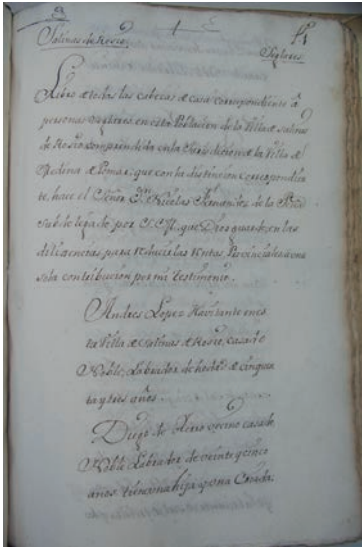 Salinas de Rosío
Seglares
Libro de todas las cabezas de casa correspondiente á
personas seglares en esta Poblacion de la Villa de Salinas
de Rosio comprendida en la Jurisdicion de la Villa de
Medina de Pomar, que con la distincion correspondien
te, hace el Señor Dn Nicolas Fernandez de la
Subdelegado por S.M. que Dios guarde, en las
diligencias para reducir las rentas Provinciales á una
sola contribucion por mi testimonio.
Andres Lopez Havitante en es
ta Villa de Salinas de Rosio, casado
Noble, Labrador de hedad de cinquen
ta y tres años.
Diego de vecino casado
Noble Labrador de veinte y cinco
años. tiene una hija y una Criada.